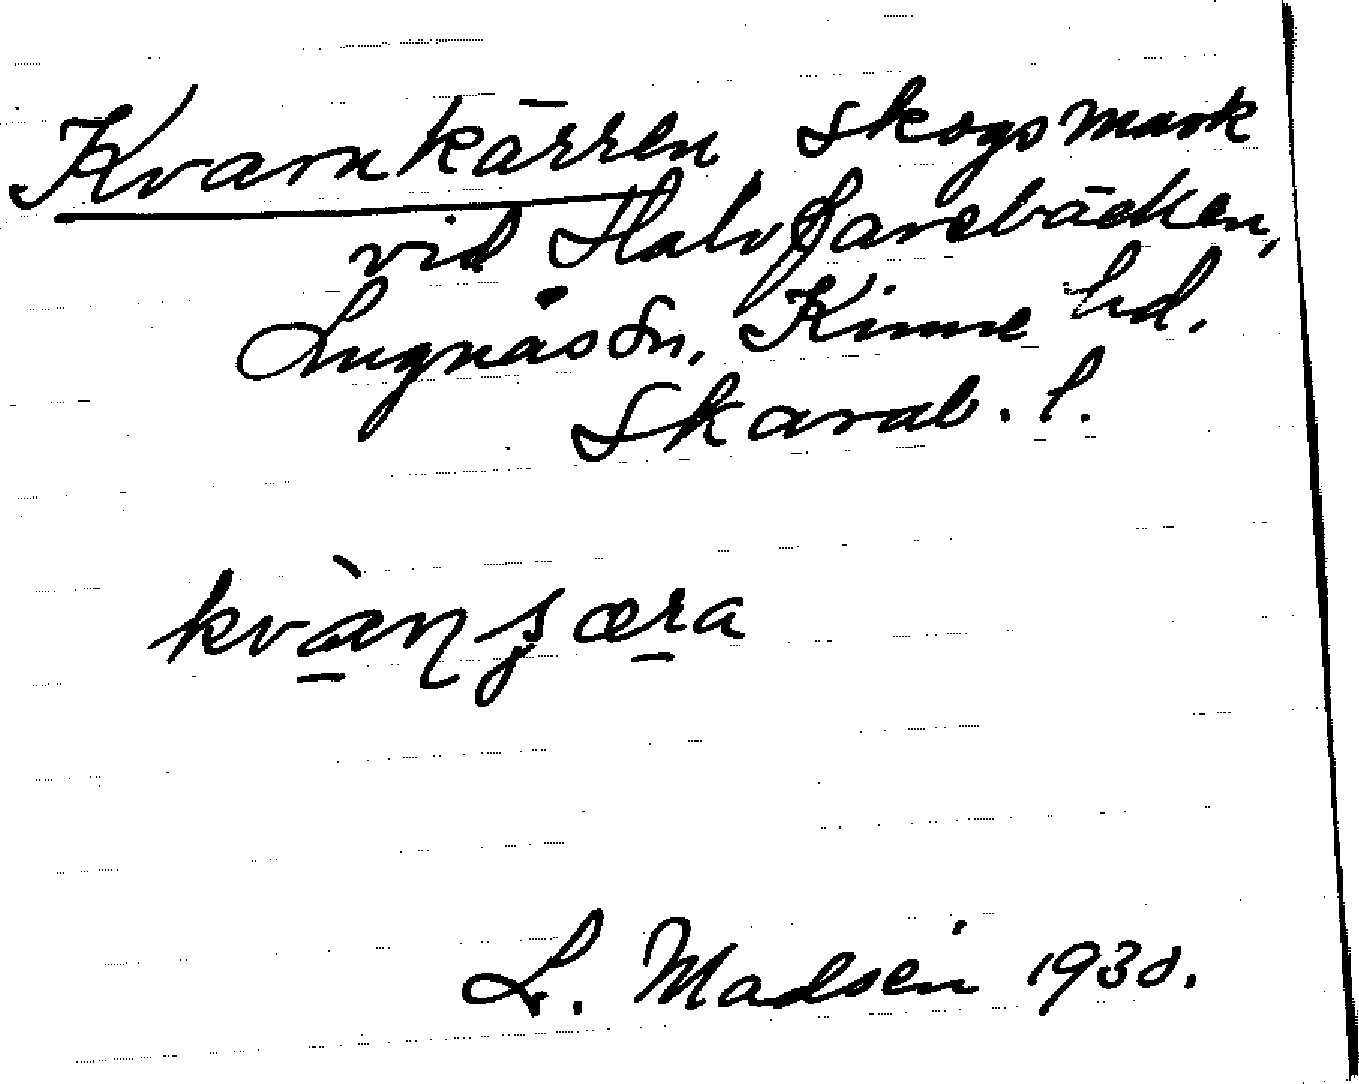 Kvarnkärren skogsmark
vid Halvfarebäcken,
Lugnås Sn, Kinne hd.
Skarab. l.
L. Madsén 1930.